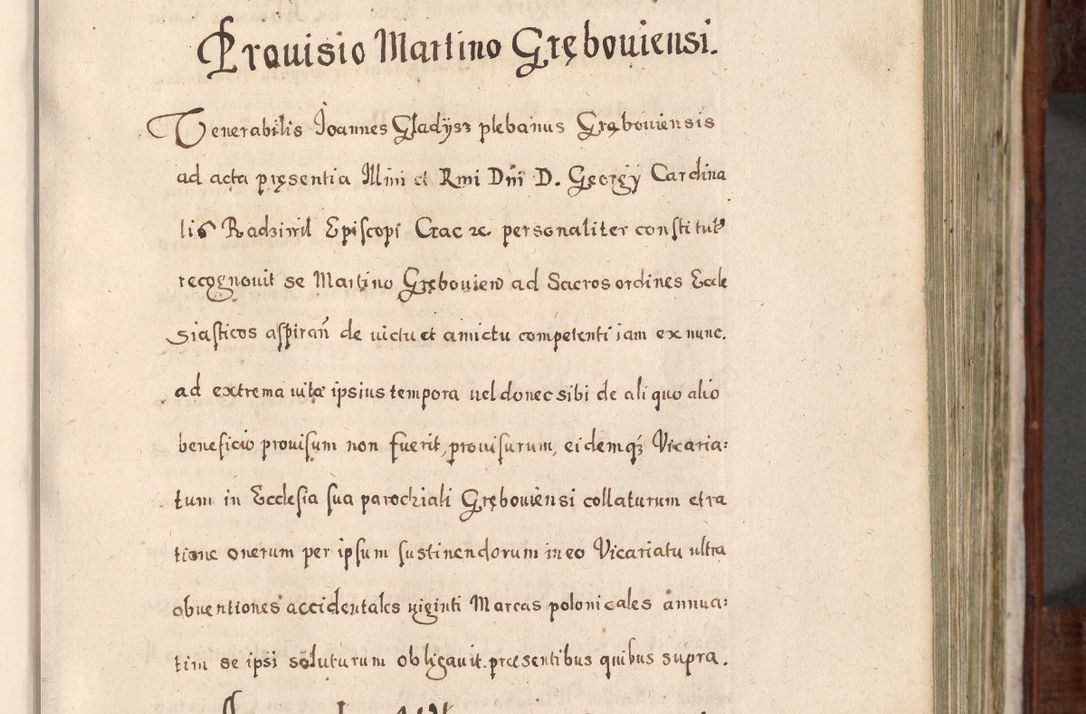 Prouisio Martino Grębouiensi.
Venerabilis Joannes Gladysz plebanus Grębouiensis
ad acta pręsentia Illmi et Rmi Dni D. Georgÿ Cardina
lis Radziwil Episcopi Crac etc. personaliter constitut9
recognouit se Martino Grębouien ad Sacros ordines Eccle
siasticos aspirañ de uictu et amictu competenti iam ex nunc.
ad extrema uitæ ipsius tempora uel donec sibi de aliquo alio
beneficio prouisum non fuerit, prouisurum, eidemq3 Vicaria:
tum in Ecclesia sua parochiali Grębouiensi collaturum et ra
tione onerum per ipsum sustinendorum in eo Vicariatu ultra
obuentiones accidentales uiginti Marcas polonicales annua:
tim se ipsi soluturum obligauit. præsentibus quibus supra.